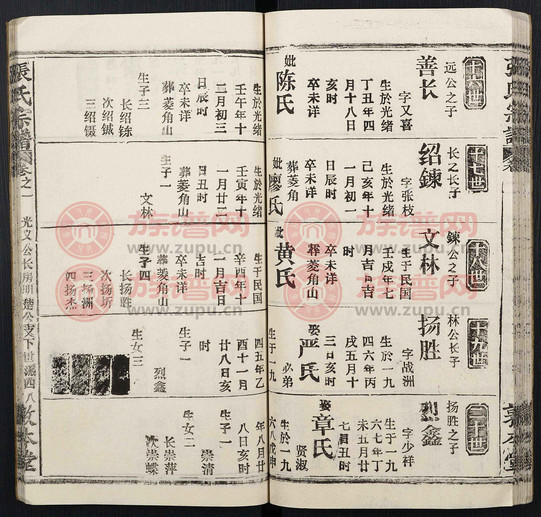 張氏宗譜
十六世
远公之子
善长
字又喜
生於光绪
丁丑年四
月十八日
卒未详
葬菱角山
妣陈氏
生於光绪
壬午年十
二月初三
日辰时
卒未详
葬菱角山
生子三
长绍鍊
次绍铖
三绍镊
十七世
长之长子
绍鍊
字张枝
生於光绪
己亥年十
一月初一
日辰时
卒未详
葬菱角
妣廖氏
生於光绪
壬寅年十
一月廿二
日丑时
卒未详
葬菱角山
生子一
文林
十八世
鍊公之子
文林
生于民国
壬戌年七
月吉日吉
时
卒未详
葬菱角山
妣黄氏
生于民国
辛酉年十
一月吉日
吉时
卒未详
葬菱角山
生子四
长扬胜
次扬圻
三扬洲
四扬杰
十九世
林公长子
扬胜
字战洲
生于一九
四六年丙
戌五月十
三日亥时
娶严氏
必弟
生于一九
四五年乙
酉十一月
廿八日亥
时
生子一
烈鑫
生女三
二十世
扬胜之子
烈鑫
字少祥
生於一九
六七年丁
未五月廿
七日丑时
娶章氏
贤淑
生於一九
六八戊申
年八月廿
八日亥时
生子一
崇清
生女二
长崇萍
次崇蝶
敦本堂
張氏宗譜
卷之一
光义公长房明楚公支下世派四八
敦本堂
族谱网
www.zupu.cn
族谱网
www.zupu.cn
族谱网
www.zupu.cn
族谱网
www.zupu.cn